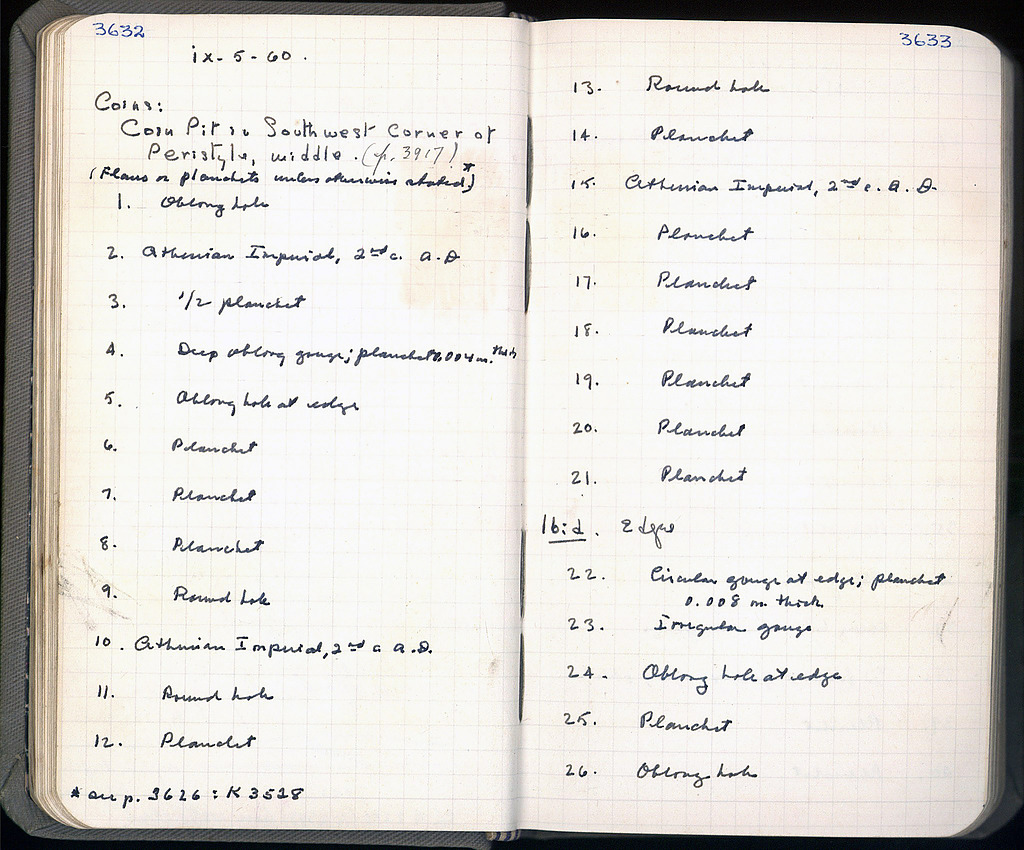 3632
ix-5-60.
Coins:
Coin Pit in Southwest Corner of
Peristyle, middle. (p. 3917)
(Flans or planchets unless otherwise stated)*
1. Oblong hole
2. Athenian Imperial, 2nd c. A.D
3. 1/2 planchet
4. Deep oblong gouge; planchet 0.004 m. thick
5. Oblong hole at edge
6. Planchet
7. Planchet
8. Planchet
9. Round hole
10. Athenian Imperial, 2nd c A.D.
11. Round hole
12. Planchet
* see p. 3626: K 3518
3633
13. Round hole
14. Planchet
15. Athenian Imperial, 2nd c. A.D.
16. Planchet
17. Planchet
18. Planchet
19. Planchet
20. Planchet
21. Planchet
16:d. Edges
22. Circular gouge at edge; planchet
0.008 m. thick
23. Irregular gouge
24. Oblong hole at edge
25. Planchet
26. Oblong hole